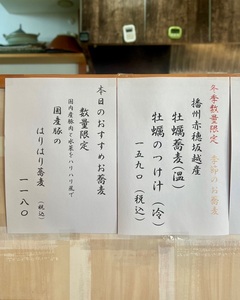 冬季数量限定 季節のお蕎麦
播州赤穂坂越産
牡蠣蕎麦(温)
牡蠣のつけ汁(冷)
一五九〇(税込)
本日のおすすめお蕎麦
数量限定
国内産豚肉と水菜をハリハリ風で
国産豚の
はりはり蕎麦
一一八〇(税込)